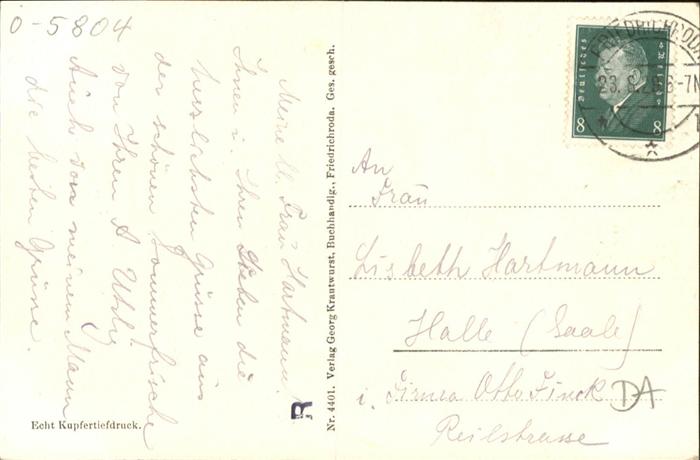 0-5804
Meine lb. Frau Hartmann!
Ihnen u. Ihren Lieben die
herzlichsten Grüsse aus
der schönen Sommerfrische
von Ihren A
Auch von meinem Mann
die besten Grüsse.
Echt Kupfertiefdruck.
R
Nr. 4401. Verlag Georg Krautwurst, Buchhandlg., Friedrichroda. Ges. gesch.
FRIEDRICHRODA
23. 8. 28. 6-7N
Deutsches Reich
8 8
An
Frau
Lisbeth Hartmann
Halle (Saale)
i. Firma Otto Finck
Reilstrasse
DA